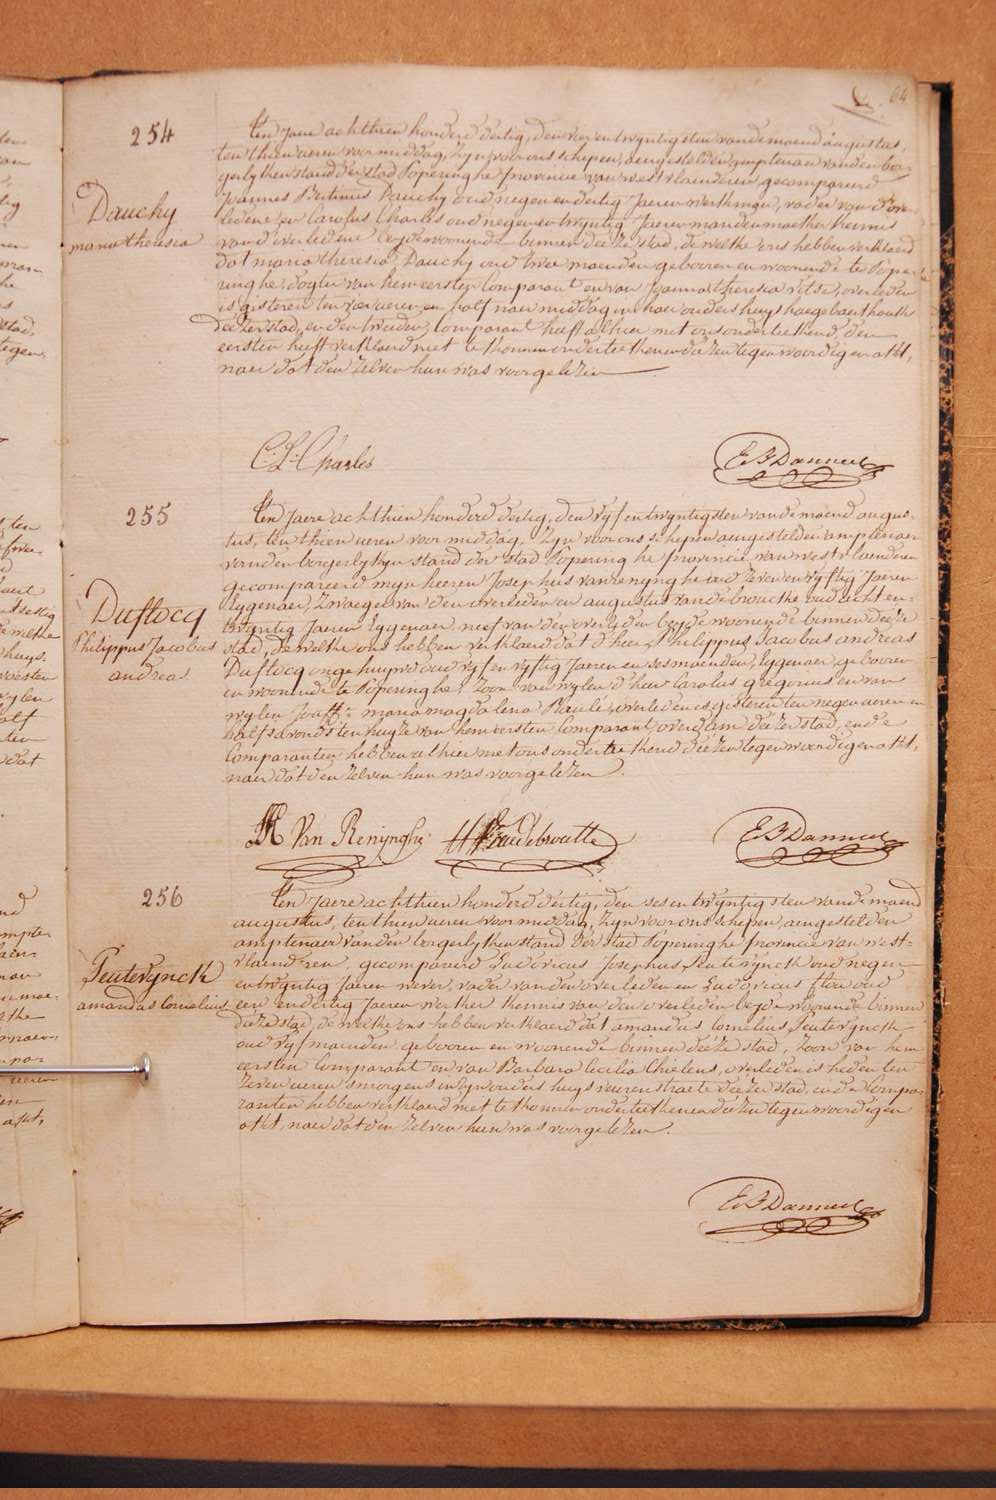 64
254
Dauchy
maria theresia
Ten Jaere achthien honderd dertig, den vier en twyntigsten van de maend augustus,
ten thien ueren voormiddag, Zyn voor ons schepen, aengestelden amptenaer van den bor-
gerlyken stand der stad Poperinghe provincie van westvlaenderen gecompareerd
Joannes Bertinus Dauchy oud negen en dertig Jaeren werkman, vader van d'over-
ledene en Carolus Charles oud negen en twyntig Jaeren mandenmaeker kennis
van d'overledene beyde woonende binnen deeze stad, de welke ons hebben verklaerd
dat maria theresia Dauchy oud twee maenden gebooren en woonende te Pope-
ringhe, dogter van hem eersten Comparant en van Joanna theresia overleden
is gisteren ten zes ueren en half naermiddag in haer ouders huys
deezer stad, en den tweeden Comparant heeft alhier met ons onderteekend, den
eersten heeft verklaerd niet te konnen onderteekenen deezen tegenwoordigen akt,
naer dat den zelven hun was voorgelezen
C. L. Charles
E B Danneel
255
Duflocq
Philippus Jacobus
andreas
Ten Jaere achthien honderd dertig, den vyf en twyntigsten van de maend augus-
tus, ten thien ueren voormiddag, Zyn voor ons schepen aengestelden amptenaer
van den borgerlyken stand der stad Poperinghe provincie van westvlaenderen
gecompareerd mynheeren Josephus van renynghe oud Zeven en vyftig Jaeren
Eygenaer, Zwaeger van den overleden en augustus van de broucke oud acht en
twyntig Jaeren Eygenaer, neef van den overleden beyde woonende binnen deeze
stad, de welke ons hebben verklaerd dat d'heer Philippus Jacobus andreas
Duflocq ongehuywd oud vyf en vyftig Jaeren en ses maenden, Eygenaer, gebooren
en woonende te Poperinghe, Zoon van wylen d'heer Carolus gregorius en van
wylen Jouffe. maria magdalena overleden is gisteren ten negen ueren en
half s'avonds ten huyze van hem eersten Comparant deezer stad, en de
Comparanten hebben alhier met ons onderteekend deezen tegenwoordigen akt,
naer dat den zelven hun was voorgelezen.
Van Renynghe
Vandebroucke
E B Danneel
256
Peuterynck
amandus Cornelius
Ten Jaere achthien honderd dertig, den ses en twyntigsten van de maend
augustus, ten thien ueren voormiddag, Zyn voor ons schepen, aengestelden
amptenaer van den borgerlyken stand der stad Poperinghe provincie van west-
vlaenderen, gecompareerd Ludovicus Josephus Peuterynck oud negen
en twyntig Jaeren wever, vader van den overleden en Ludovicus oud
een en dertig Jaeren werker kennis van den overleden beyde woonende binnen
deeze stad, de welke ons hebben verklaerd dat amandus Cornelius Peuterynck
oud vyf maenden gebooren en woonende binnen deeze stad, Zoon van hem
eersten Comparant en van Barbara Cecilia overleden is heden ten
Zeven ueren s'morgens in zyn ouders huys straete deezer stad, en de Compa-
ranten hebben verklaerd niet te konnen onderteekenen deezen tegenwoordigen
akt, naer dat den zelven hun was voorgelezen.
E B Danneel